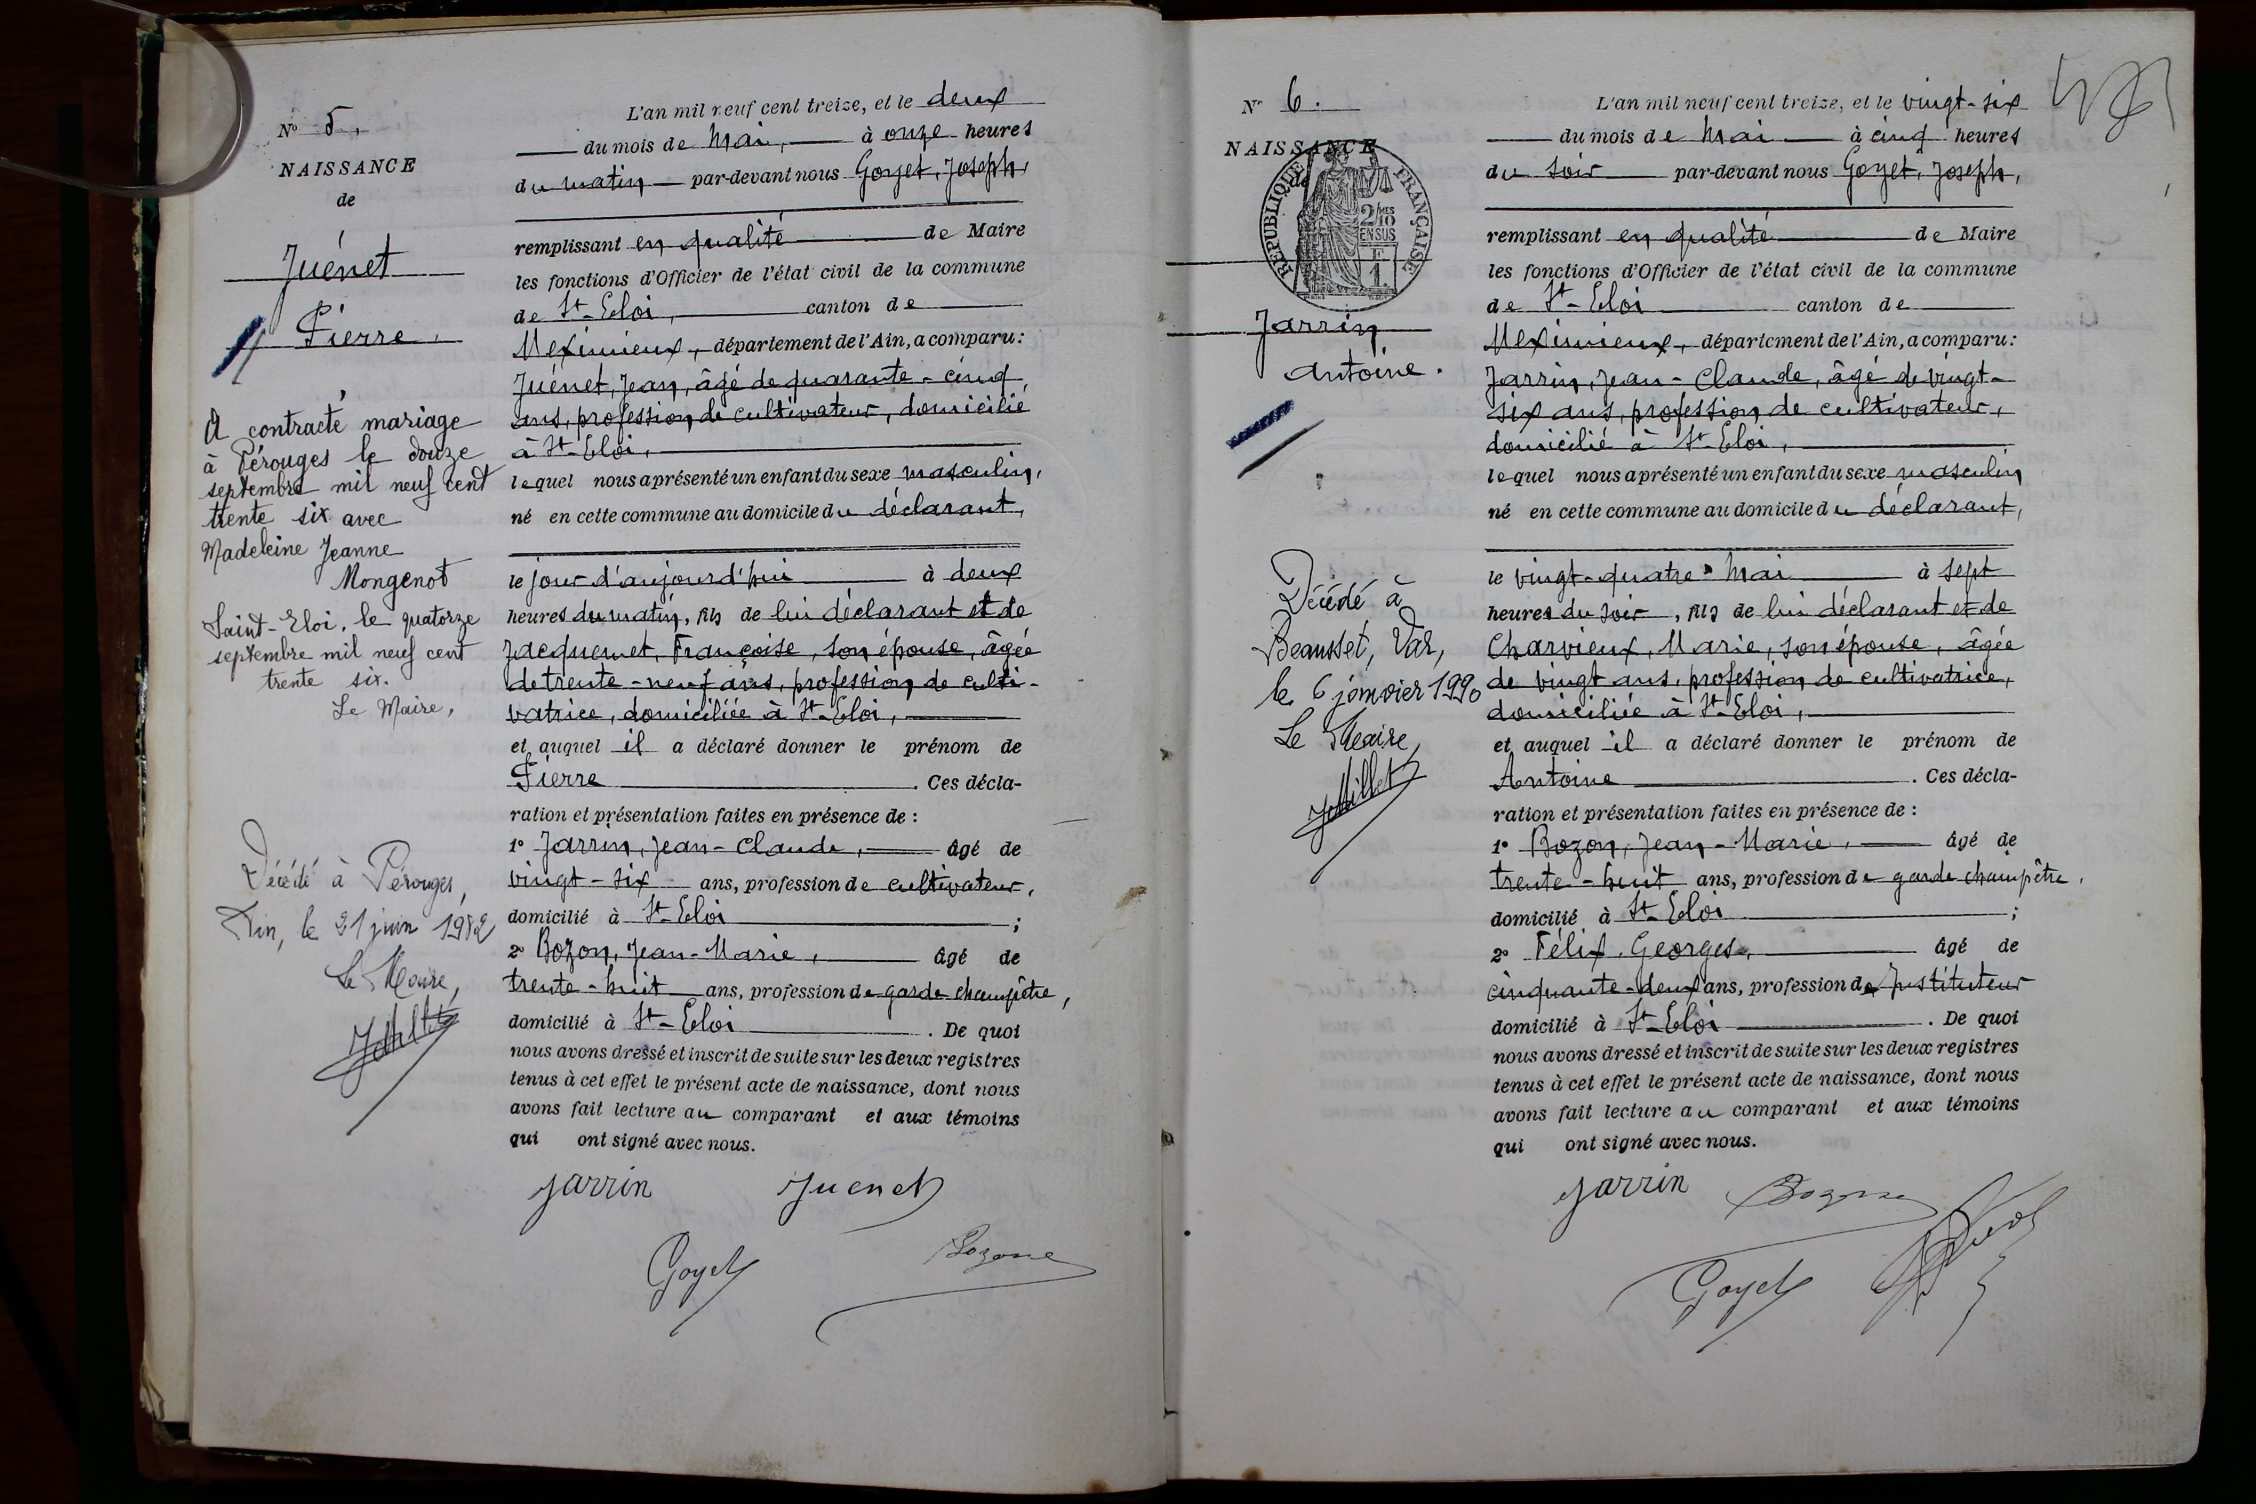 N° 5.
NAISSANCE
de
Juénet
Pierre.
A contracté mariage
à Pérouges le douze
septembre mil neuf cent
trente six avec
Madeleine Jeanne
Mongenot
Saint-Eloi, le quatorze
septembre mil neuf cent
trente six.
Le Maire,
Décédé à Pérouges,
Ain, le 21 juin 1982
Le Maire,
L'an mil neuf cent treize, et le deux
du mois de Mai, à onze heures
du matin par-devant nous Goyet, Joseph,
remplissant en qualité de Maire
les fonctions d'Officier de l'état civil de la commune
de St-Eloi, canton de
Meximieux, département de l'Ain, a comparu:
Juénet, Jean, âgé de quarante-cinq
ans, profession de cultivateur, domicilié
à St-Eloi,
lequel nous a présenté un enfant du sexe masculin,
né en cette commune au domicile du déclarant,
le jour d'aujourd'hui à deux
heures du matin, fils de lui déclarant et de
Jacquemet, Françoise, son épouse, âgée
de trente-neuf ans, profession de culti-
vatrice, domiciliée à St-Eloi,
et auquel il a déclaré donner le prénom de
Pierre. Ces décla-
ration et présentation faites en présence de :
1° Jarrin, Jean-Claude, âgé de
vingt-six ans, profession de cultivateur,
domicilié à St-Eloi ;
2° Bozon, Jean-Marie, âgé de
trente-huit ans, profession de garde champêtre,
domicilié à St-Eloi. De quoi
nous avons dressé et inscrit de suite sur les deux registres
tenus à cet effet le présent acte de naissance, dont nous
avons fait lecture au comparant et aux témoins
qui ont signé avec nous.
Jarrin Juenet
Goyet Bozon
N° 6.
NAISSANCE
de
REPUBLIQUE FRANÇAISE
2/10MES
EN SUS
F
1
Jarrin
Antoine.
Décédé à
Beausset, Var,
le 6 janvier 1990
Le Maire,
JMillet
L'an mil neuf cent treize, et le vingt-six
du mois de Mai à cinq heures
du soir par-devant nous Goyet, Joseph,
remplissant en qualité de Maire
les fonctions d'Officier de l'état civil de la commune
de St-Eloi canton de
Meximieux, département de l'Ain, a comparu:
Jarrin, Jean-Claude, âgé de vingt-
six ans, profession de cultivateur,
domicilié à St-Eloi,
lequel nous a présenté un enfant du sexe masculin
né en cette commune au domicile du déclarant,
le vingt-quatre Mai à sept
heures du soir, fils de lui déclarant et de
Charvieux, Marie, son épouse, âgée
de vingt ans, profession de cultivatrice,
domiciliée à St-Eloi,
et auquel il a déclaré donner le prénom de
Antoine. Ces décla-
ration et présentation faites en présence de :
1° Bozon, Jean-Marie, âgé de
trente-huit ans, profession de garde champêtre,
domicilié à St-Eloi ;
2° Félix, Georges, âgé de
cinquante-deux ans, profession de Instituteur
domicilié à St-Eloi. De quoi
nous avons dressé et inscrit de suite sur les deux registres
tenus à cet effet le présent acte de naissance, dont nous
avons fait lecture au comparant et aux témoins
qui ont signé avec nous.
Jarrin Bozon
Goyet